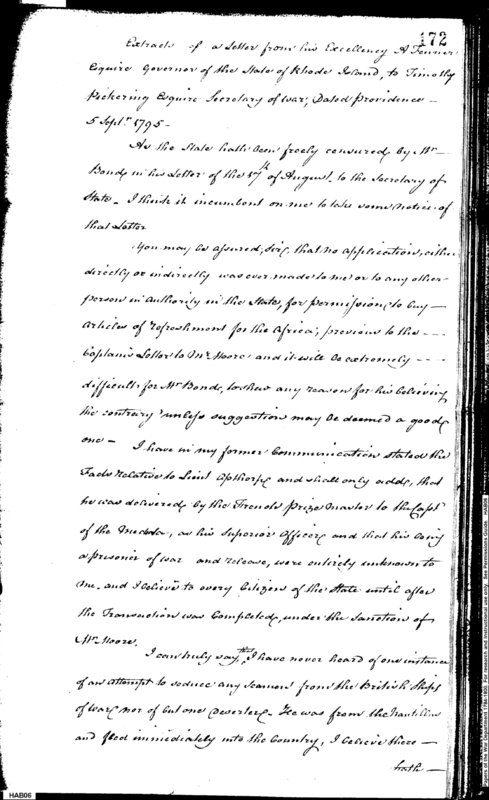 172
Extract of a Letter from his Excellency A Fenner
Esquire Governor of the State of Rhode Island, to Timothy
Pickering Esquire Secretary of War, Dated Providence -
5 Septr. 1795 -
As the State hath been freely censured by Mr
Bond in his Letter of the 17th of August, to the Secretary of
State - I think it incumbent on me to take some notice of
that Letter
You may be assured, Sir, that no application, either
directly or indirectly was ever made to me or to any other
person in Authority in the State, for permission to buy -
Articles of refreshment for the Africa, previous to the - - -
Captains Letter to Mr Moore and it will be extremely - - -
difficult for Mr Bond, to shew any reason for his believing
the contrary unless suggestion may be deemed a good
one - I have in my former Communication stated the
Facts relative to Lieut Apthorp and shall only add, that
he was delivered by the French Prize Master to the Capt
of the Medusa, as his Superior Officer, and that his being
a prisoner of war and release, were entirely unknown to
me, and I believe to every Citizen of the State until after
the Transaction was Completed, under the Sanction of
Mr Moore.
I can truly say, that I have never heard of one instance
of an attempt to seduce any seamen from the British Ships
of War, nor of but one deserter - He was from the Nautillus
and fled immediately into the Country, I believe there -
hath -
HAB06